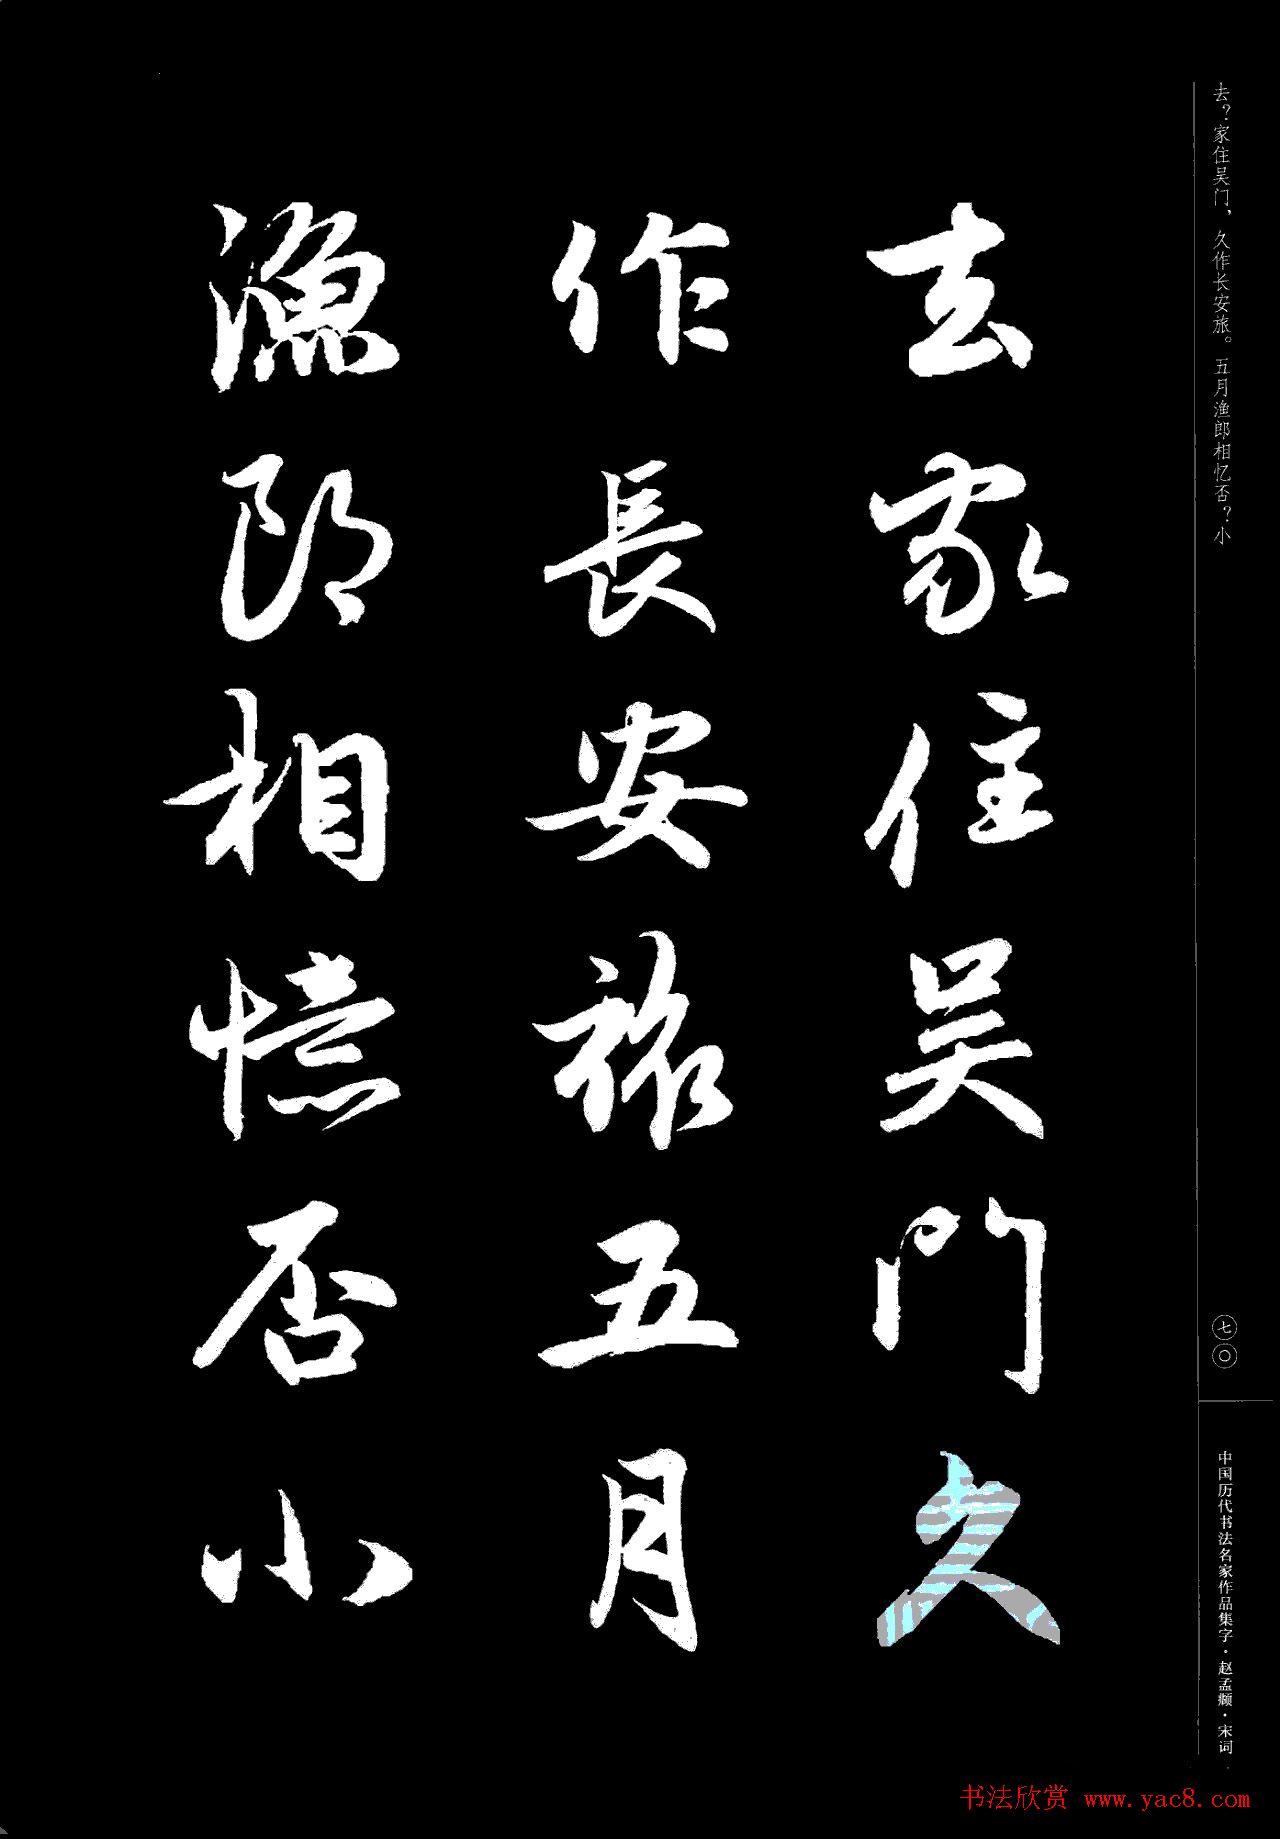 去？家住吴门，久作长安旅。五月渔郎相忆否？小
去家住吴門久
作長安旅五月
漁郎相憶否小
七〇
中国历代书法名家作品集字·赵孟頫·宋词
书法欣赏 www.yac8.com